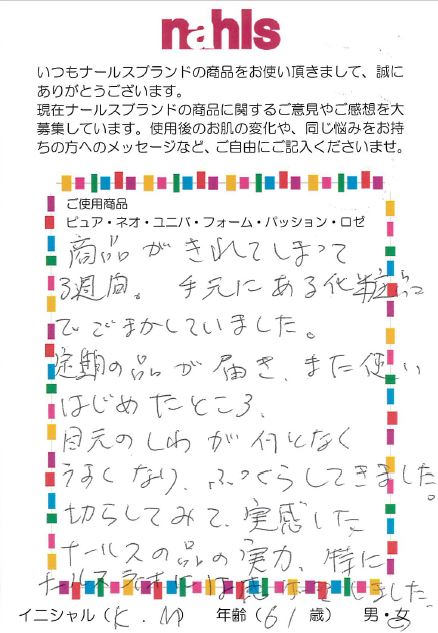 nahls
いつもナールスブランドの商品をお使い頂きまして、誠に
ありがとうございます。
現在ナールスブランドの商品に関するご意見やご感想を大
募集しています。使用後のお肌の変化や、同じ悩みをお持
ちの方へのメッセージなど、ご自由にご記入くださいませ。
ご使用商品
ピュア・ネオ・ユニバ・フォーム・パッション・ロゼ
商品がきれてしまって
3週間。手元にある化粧
でごまかしていました。
定期の品が届き、また使い
はじめたところ、
目元のしわが何となく
うすくなり、ふっくらしてきました。
切らしてみて、実感した
ナールスの品の実力、特に
ナールスネオには しました。
イニシャル(K.M) 年齢(61歳) 男・女